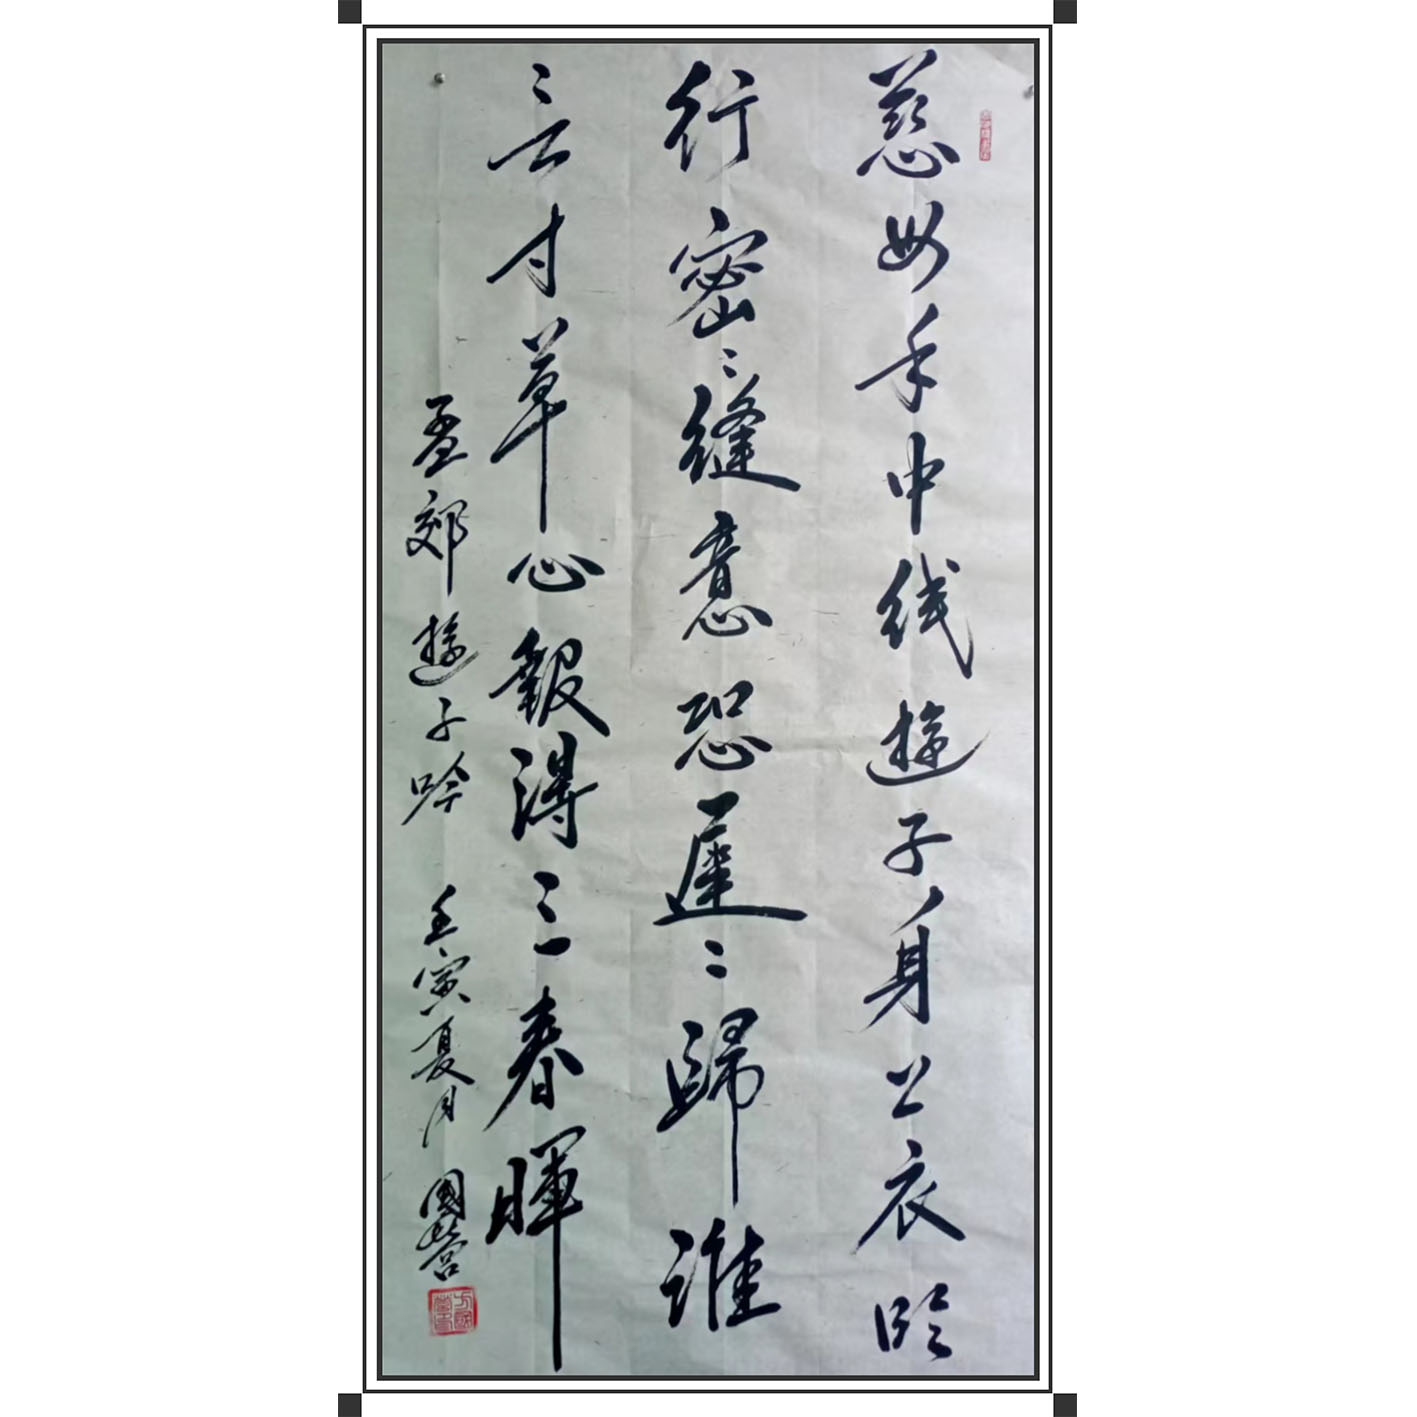 慈母手中线遊子身上衣临
行密〻缝意恐遲〻歸谁
言寸草心報得三春暉
孟郊遊子吟 壬寅夏月 國營